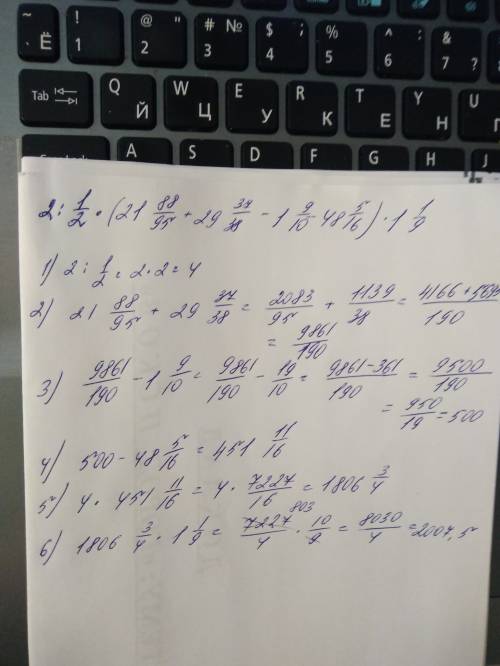 Ё ! 1 @ " 2 # № 3 $ ; 4 % 5 ^ : 6 & ? 7
Tab Q Й W Ц E У R К T Е Y Н U
A S D F G H J
2 : 1/2 · (21 88/95 + 29 37/38 - 1 9/10 48 5/16) · 1 1/9
1) 2 : 1/2 = 2 · 2 = 4
2) 21 88/95 + 29 37/38 = 2083/95 + 1139/38 = 4166 + 5695/190
= 9861/190
3) 9861/190 - 1 9/10 = 9861/190 - 19/10 = 9861 - 361/190 = 9500/190
= 950/19 = 500
4) 500 - 48 5/16 = 451 11/16
5) 4 · 451 11/16 = 4 · 7227/16 = 1806 3/4
6) 1806 3/4 · 1 1/9 = 7227/4 803 · 10/9 = 8030/4 = 2007,5